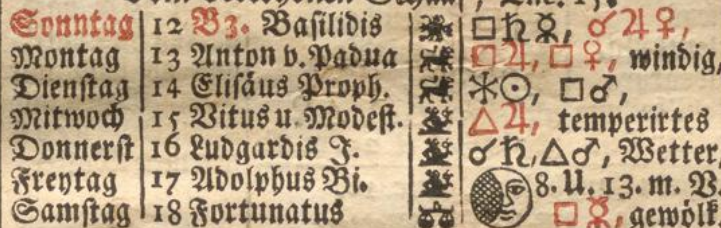 Sonntag 12 B3. Basilidis □♄☿, ☌♃♀,
Montag 13 Anton v. Padua □♃, □♀, windig,
Dienstag 14 Elisäus Proph. ⚹☉, □♂,
Mitwoch 15 Vitus u. Modest. △♃, temperirtes
Donnerst 16 Ludgardis J. ☌♄, △♂, Wetter,
Freytag 17 Adolphus Bi. 8. U. 13. m. V
Samstag 18 Fortunatus □☿, gewölk,